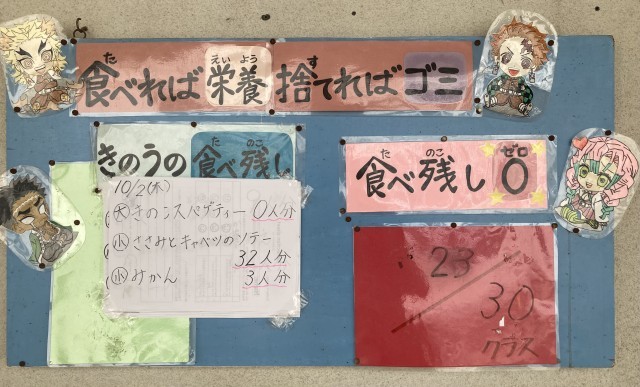 食べれば栄養 捨てればゴミ
きのうの食べ残し
10/2(木)
大 きのこスパゲティー 0人分
小 ささみとキャベツのソテー
32人分
小 みかん 3人分
食べ残し0
23
30
クラス